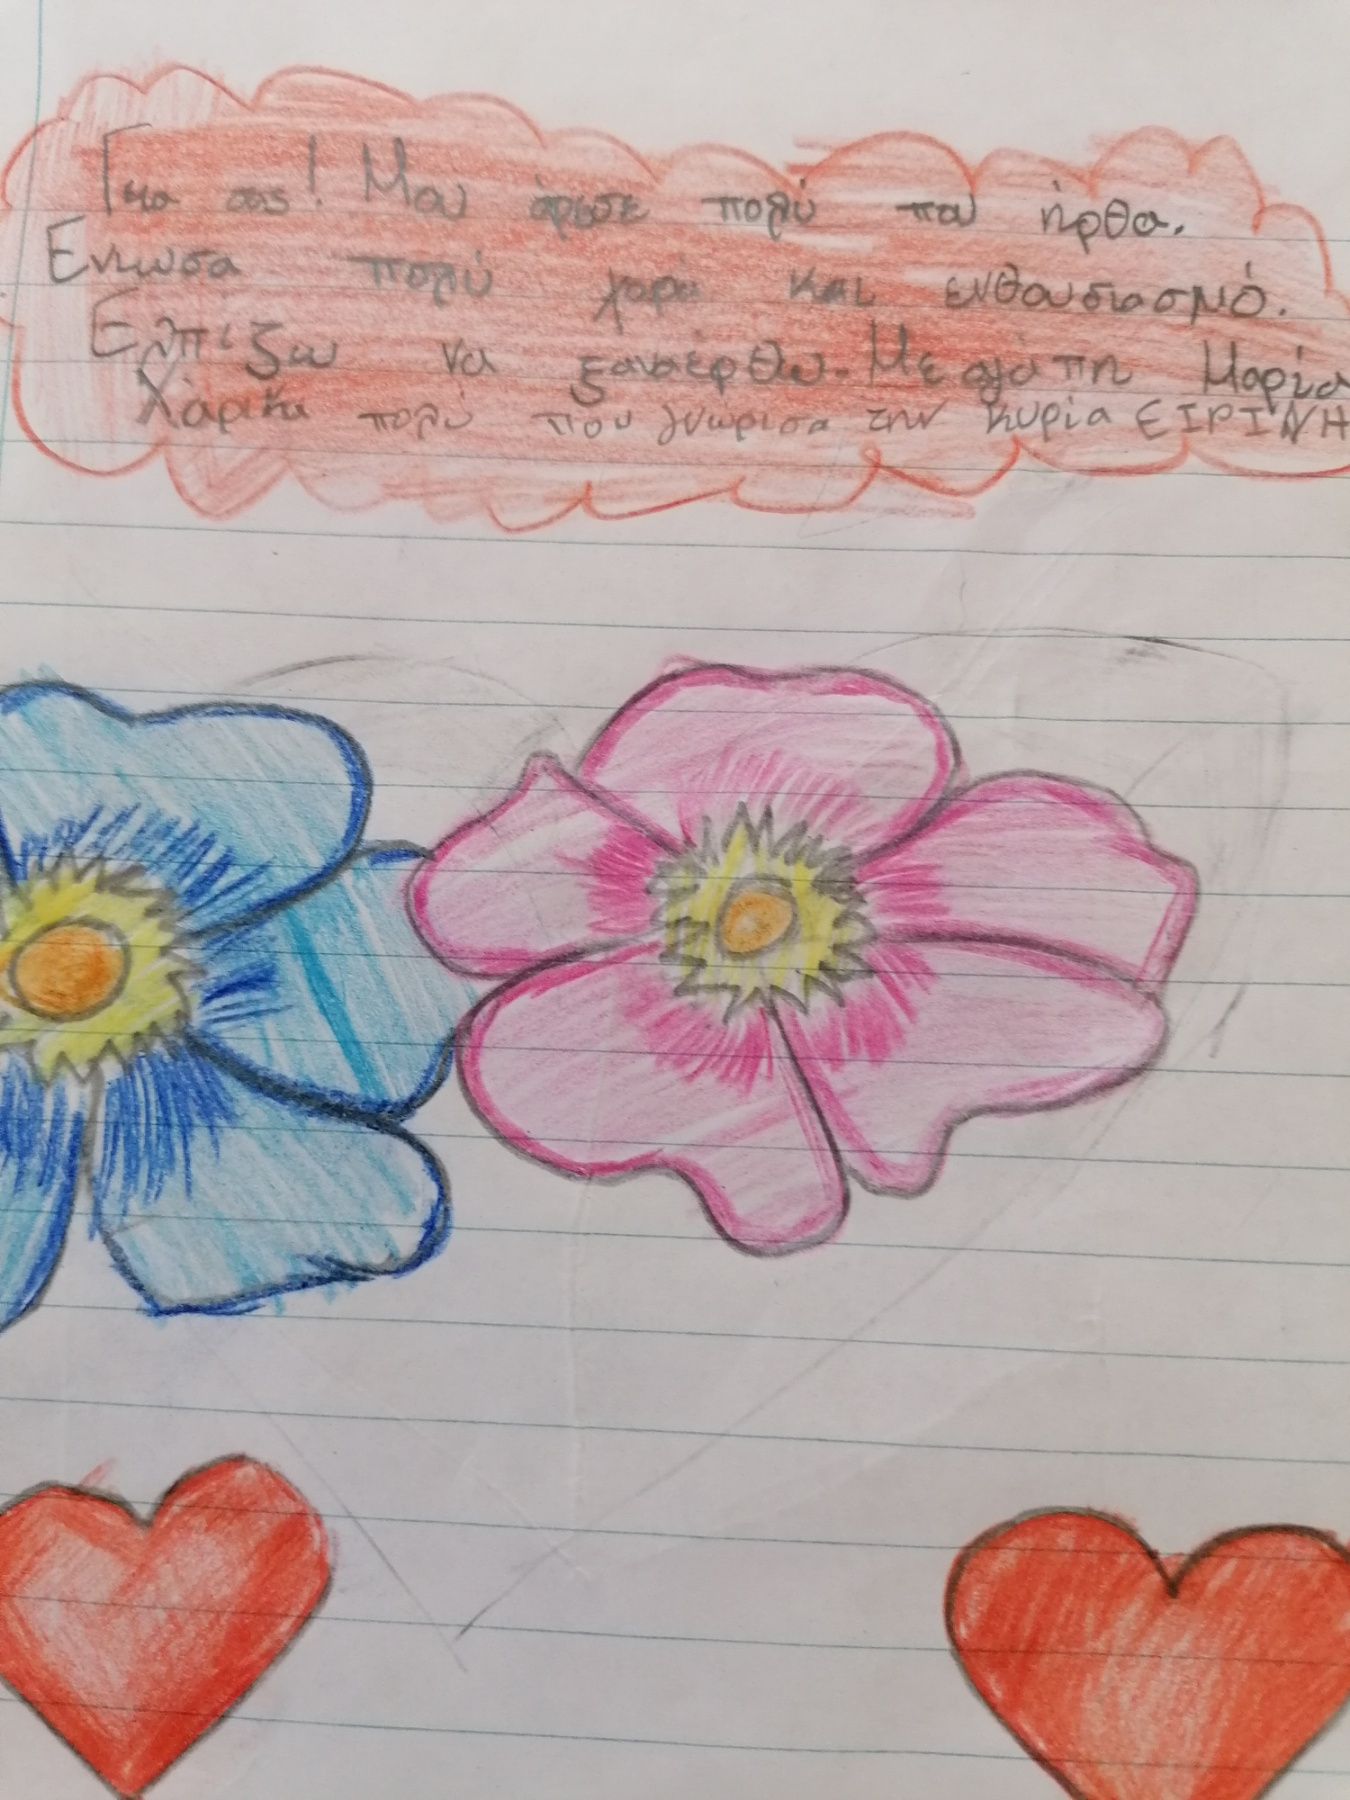 Γεια σας! Μου άρεσε πολύ που ήρθα.
Ενιωσα πολύ χαρά και ενθουσιασμό.
Ελπίζω να ξαναέρθω. Με αγάπη Μαρία
Χάρικα πολύ που γνώρισα την κυρία ΕΙΡΙΝΗ